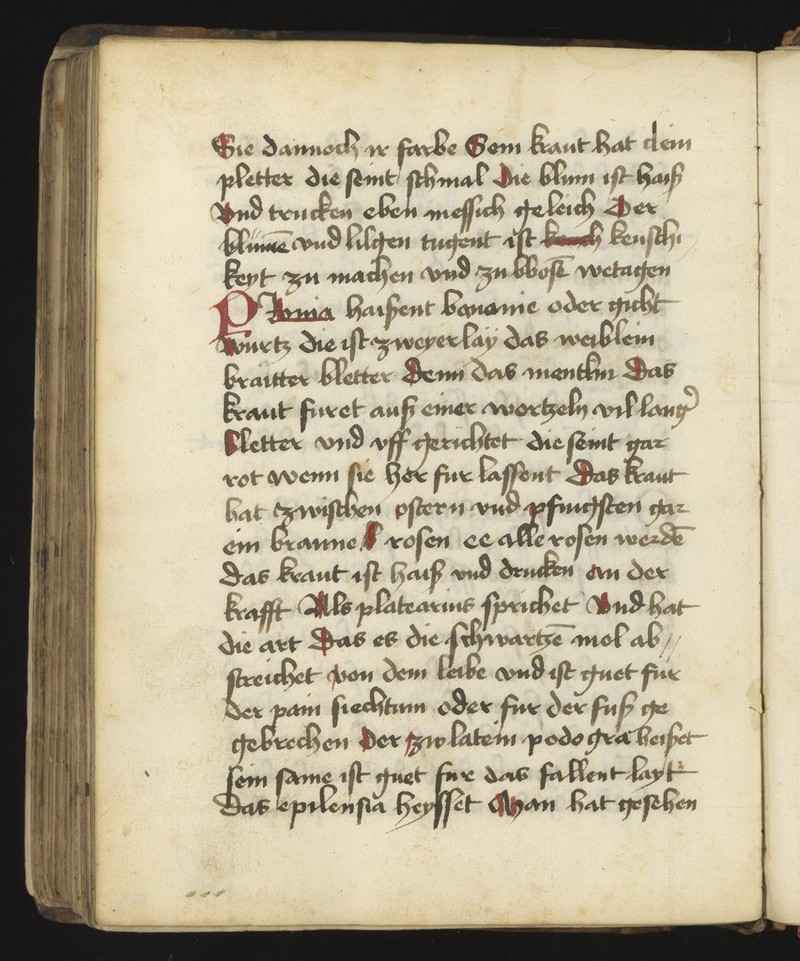 Sie dannoch ir farbe Sein kraut hat clein
pletter die seint schmal Die blum ist haiß
Vnd trucken eben messich geleich Der
blume͂ vnd lilgen tugent ist keusch keuschi
keyt zu machen vnd zu bbose͂ wetagen
Pionia haißent bananie oder gicht
wurtz die ist zweyerlay das weiblein
braitter bletter Denn das menlin Das
kraut furet auß einer wortzeln vil lang͛
bletter vnd vff gerichtet die seint gar
rot wenn sie her fur lassent Das kraut
hat zwischen ostern vnd pfingsten gar
ein braune rosen ee alle rosen werde͂
Das kraut ist haiß vnd drucken an der
krafft Als platearius sprichet Vnd hat
die art Das es die schwartze͂ mol ab //
streichet von dem leibe vnd ist guet fur
Der pain siechtum oder fur der fuß ge
gebrechen Der zw latein podogra heißet
sein same ist guet fur das fallent layt
Das epilensia heysset Man hat gesehen